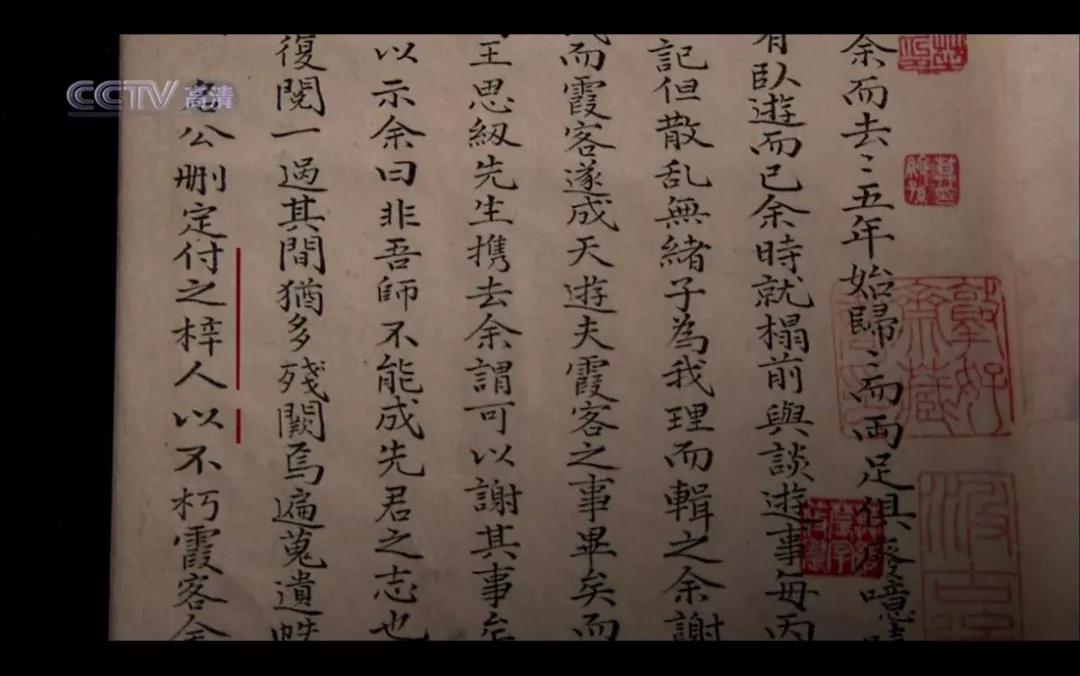 CCTV高清
余而去〻五年始歸〻而両足俱廢噫
有臥遊而已余時就榻前與談遊事每丙
記但散乱無緒子為我理而輯之余謝
而霞客遂成天遊夫霞客之事畢矣而
王思紉先生携去余謂可以謝其事
以示余曰非吾師不能成先君之志也
復閱一過其間猶多殘闕焉遍蒐遺帙
公删定付之梓人以不朽霞客余